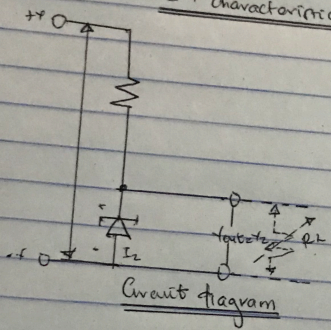 characteristic
+v
Vout=Vz
RL
-v
Iz
Circuit diagram